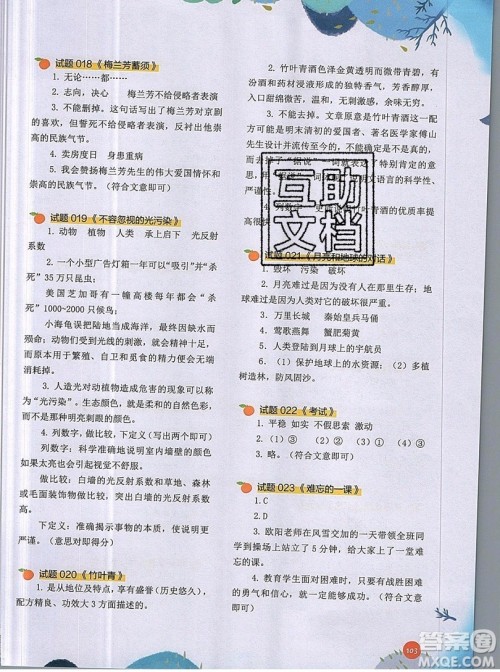 试题 018《梅兰芳蓄须》
1. 无论……都……
2. 志向、决心　梅兰芳不给侵略者表演
3. 不能删掉。这句话写出了梅兰芳对京剧
的喜爱，但誓死不给侵略者表演，反衬出他崇
高的民族气节。
4. 卖房度日　身患重病
5. 我会赞扬梅兰芳先生的伟大爱国情怀和
崇高的民族气节。（符合文意即可）
试题 019《不容忽视的光污染》
1. 动物　植物　人类　承上启下　光反射
系数
2. 一个小型广告灯箱一年可以“吸引”并“杀
死”35 万只昆虫。
美国芝加哥有一幢高楼每年都可以“杀
死”1000~2000 只候鸟。
小海龟误把陆地当成海洋，最终因缺水死
在沙滩上；动物们受到光线的刺激，夜间精神
十足，原本用于繁殖、自卫和觅食的精力无缘
消耗掉。
3. 人造光对动植物造成危害的现象可以称
为“光污染”。生态颜色，即和大自然色彩相近，
而非那种明亮刺眼的颜色。
4. 列数字，做比较，下定义（写出两种即可）
列数字：科学准确地说明室内墙壁的颜色
如果太亮也会造成光污染。
做比较：白墙的光反射系数和草地、森林
或毛面装饰物体相比较，突出白墙的光反射系
数之大。
下定义：准确揭示事物的本质，使说明更
严谨。（意思对即得分）
试题 020《竹叶青》
1. 是从地位及特点，享有盛誉（历史悠久），
配方精良、功效大 3 方面描述的。
2. 竹叶青酒色泽金黄透明而微带青碧，有
汾酒和药材浸液形成的独特香气，芳香醇厚，
入口甜绵微苦，
余味无穷。
3.
竹叶青酒的
配方可能是明末清初的爱国者、著名医学家傅山
先生设计并流传至今的。
“据说”一词就表达了
特别肯定的意
语言的科学性、
严谨性。
4.
竹叶青酒的优质率提
高
试题 021《月亮和地球的对话》
1. 毁坏　污染　破坏
2. 月亮难过是因为没有人在那里生存；地
球难过是因为人类对它的破坏很严重。
3. 万里长城　秦始皇兵马俑
4. 莺歌燕舞　蟹肥菊黄
5. 人类登陆到月球上的宇航员
6. （1）保护地球上的水资源；（2）多植
树造林，防风固沙。
试题 022《考试》
1. 平稳　如实　不假思索　激动
2. （1）④　（2）①　（3）②　（4）③
3. （符合文意即可）
试题 023《难忘的一课》
1.C
2.D
3. 欧阳老师在风雪交加的一天带领全班同
学到操场上站立了 5 分钟，给同学们上了一堂难
忘的课。
4. 教育学生面对一切困难都要有敢于面对
的勇气和信心，就一定能成功。（符合文意即可）
互助
文档
103
答案圈
MXQE.COM